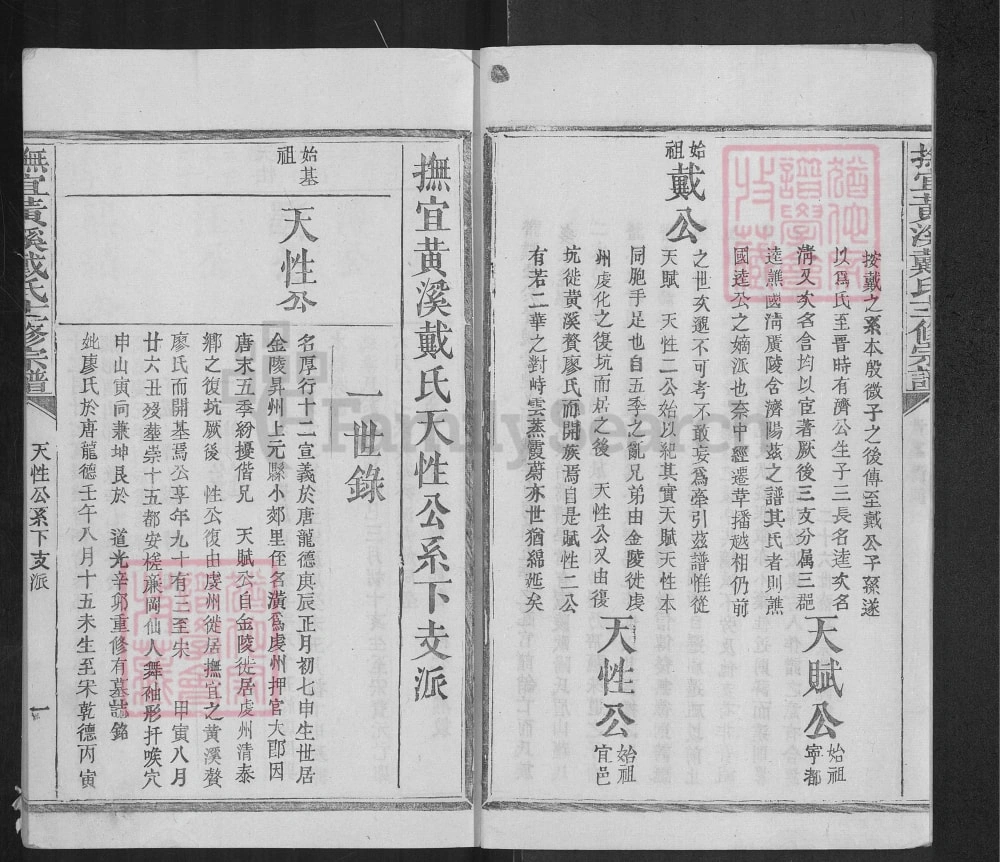 撫宜黃溪戴氏三修宗譜
按戴之系本殷微子之後傳至戴公子孫遂
以爲氏至晉時有濟公生子三長名逵次名
淸又次名含均以宦著厥後三支分属三郡
逵譙國淸廣陵含濟陽茲之譜其氏者則譙
國逵公之嫡派也奈中經遷革播越相仍前
始祖
戴公
之世次邈不可考不敢妄爲牽引茲譜惟從
天賦 天性二公始以紀其實天賦天性本
同胞手足也自五季之亂兄弟由金陵徙虔
州虔化之復坑而居之後 天性公又由復
坑徙黃溪贅廖氏而開族焉自是賦性二公
有若二華之對峙雲蒸霞蔚亦世猶綿延矣
天賦公
始祖寧都
天性公
始祖宜邑
撫宜黃溪戴氏天性公系下支派
一世錄
始基祖
天性公
名厚行十二宣義於唐龍德庚辰正月初七申生世居
金陵昇州上元縣小郊里侄名潢爲虔州押官大郎因
唐末五季紛擾偕兄 天賦公自金陵徙居虔州清泰
鄉之復坑厥後 性公復由虔州徙居撫宜之黃溪贅
廖氏而開基焉公享年九十有三至宋 甲寅八月
廿六丑殁塟崇十五都安槎蔴岡仙人舞袖形扦喉穴
申山寅向兼坤艮於 道光辛卯重修有墓誌銘
妣廖氏於唐龍德壬午八月十五未生至宋乾德丙寅
撫宜黃溪戴氏三修宗譜
天性公系下支派
一
FamilySearch